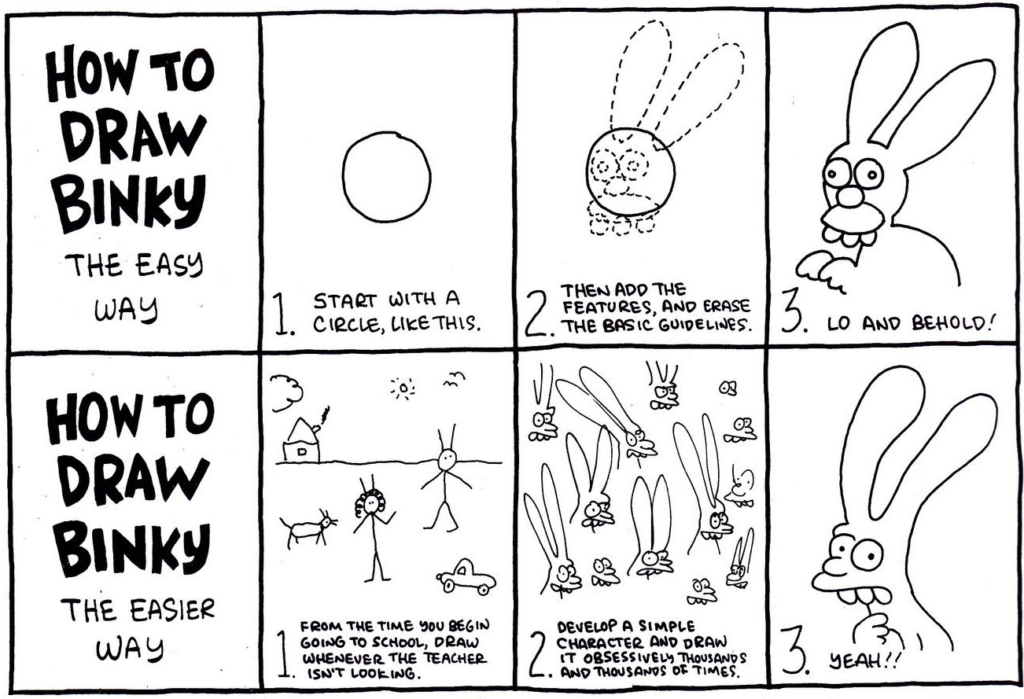 HOW TO
DRAW
BINKY
THE EASY
WAY
1. START WITH A
CIRCLE, LIKE THIS.
2. THEN ADD THE
FEATURES, AND ERASE
THE BASIC GUIDELINES.
3. LO AND BEHOLD!
HOW TO
DRAW
BINKY
THE EASIER
WAY
1. FROM THE TIME YOU BEGIN
GOING TO SCHOOL, DRAW
WHENEVER THE TEACHER
ISN'T LOOKING.
2. DEVELOP A SIMPLE
CHARACTER AND DRAW
IT OBSESSIVELY THOUSANDS
AND THOUSANDS OF TIMES.
3. YEAH!!